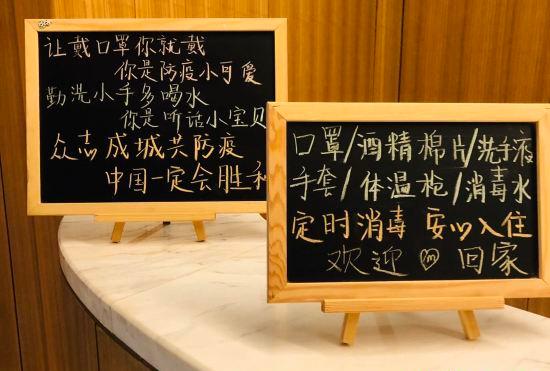 让戴口罩你就戴
你是防疫小可爱
勤洗小手多喝水
你是听话小宝贝
众志成城共防疫
中国一定会胜利
口罩/酒精棉片/洗手液
手套/体温枪/消毒水
定时消毒 安心入住
欢迎 回家